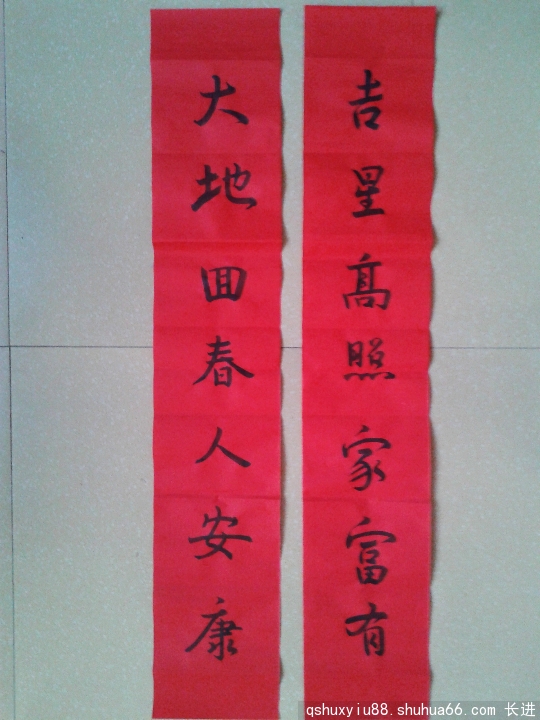 吉星高照家富有
大地回春人安康
qshuxyiu88.shuhua66.com 长进